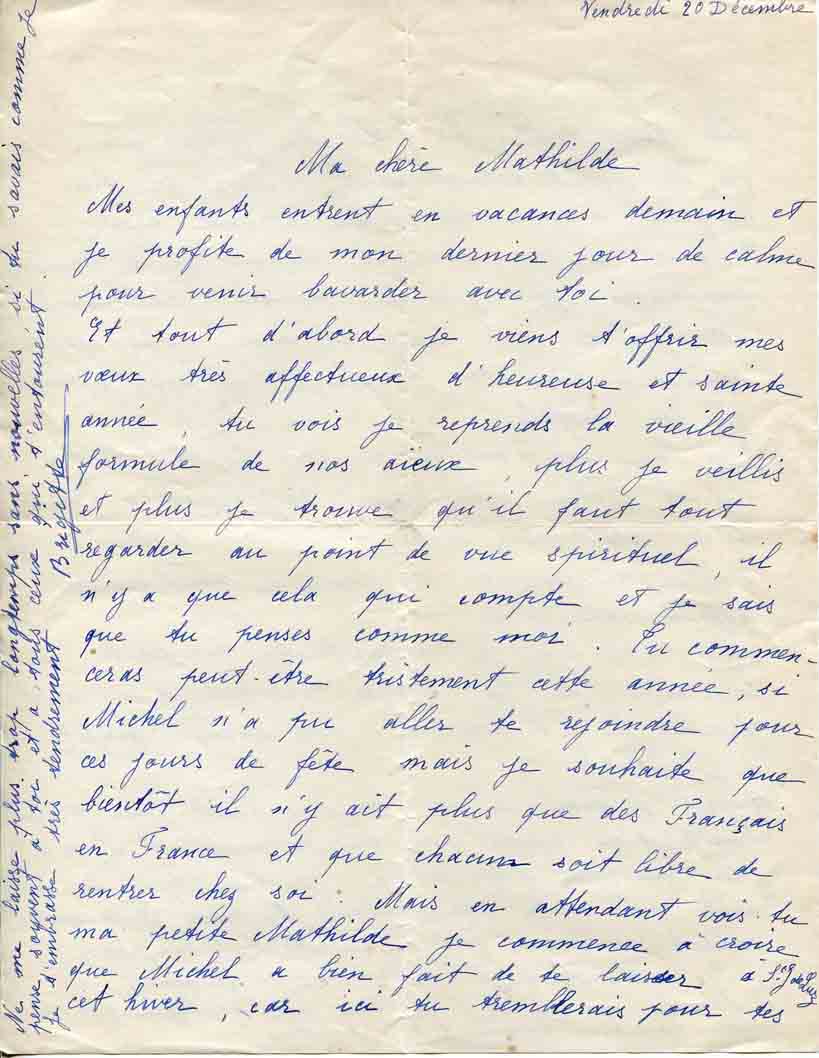 Vendredi 20 Décembre
Ma chère Mathilde
Mes enfants entrent en vacances demain et
je profite de mon dernier jour de calme
pour venir bavarder avec toi.
Et tout d'abord je viens t'offrir mes
vœux très affectueux d'heureuse et sainte
année, tu vois je reprends la vieille
formule de nos aïeux, plus je veillis
et plus je trouve qu'il faut tout
regarder au point de vue spirituel, il
n'y a que cela qui compte et je sais
que tu penses comme moi. Tu commen-
ceras peut-être tristement cette année, si
Michel n'a pu aller te rejoindre pour
ces jours de fête mais je souhaite que
bientôt il n'y ait plus que des Français
en France et que chacun soit libre de
rentrer chez soi. Mais en attendant vois-tu
ma petite Mathilde je commence à croire
que Michel a bien fait de te laisser à St J de Luz
cet hiver, car ici tu tremblerais pour tes
Ne me laisse plus trop longtemps sans nouvelles si tu savais comme je
pense souvent à toi et à tous ceux qui t'entourent.
Je t'embrasse très tendrement
Brigitte